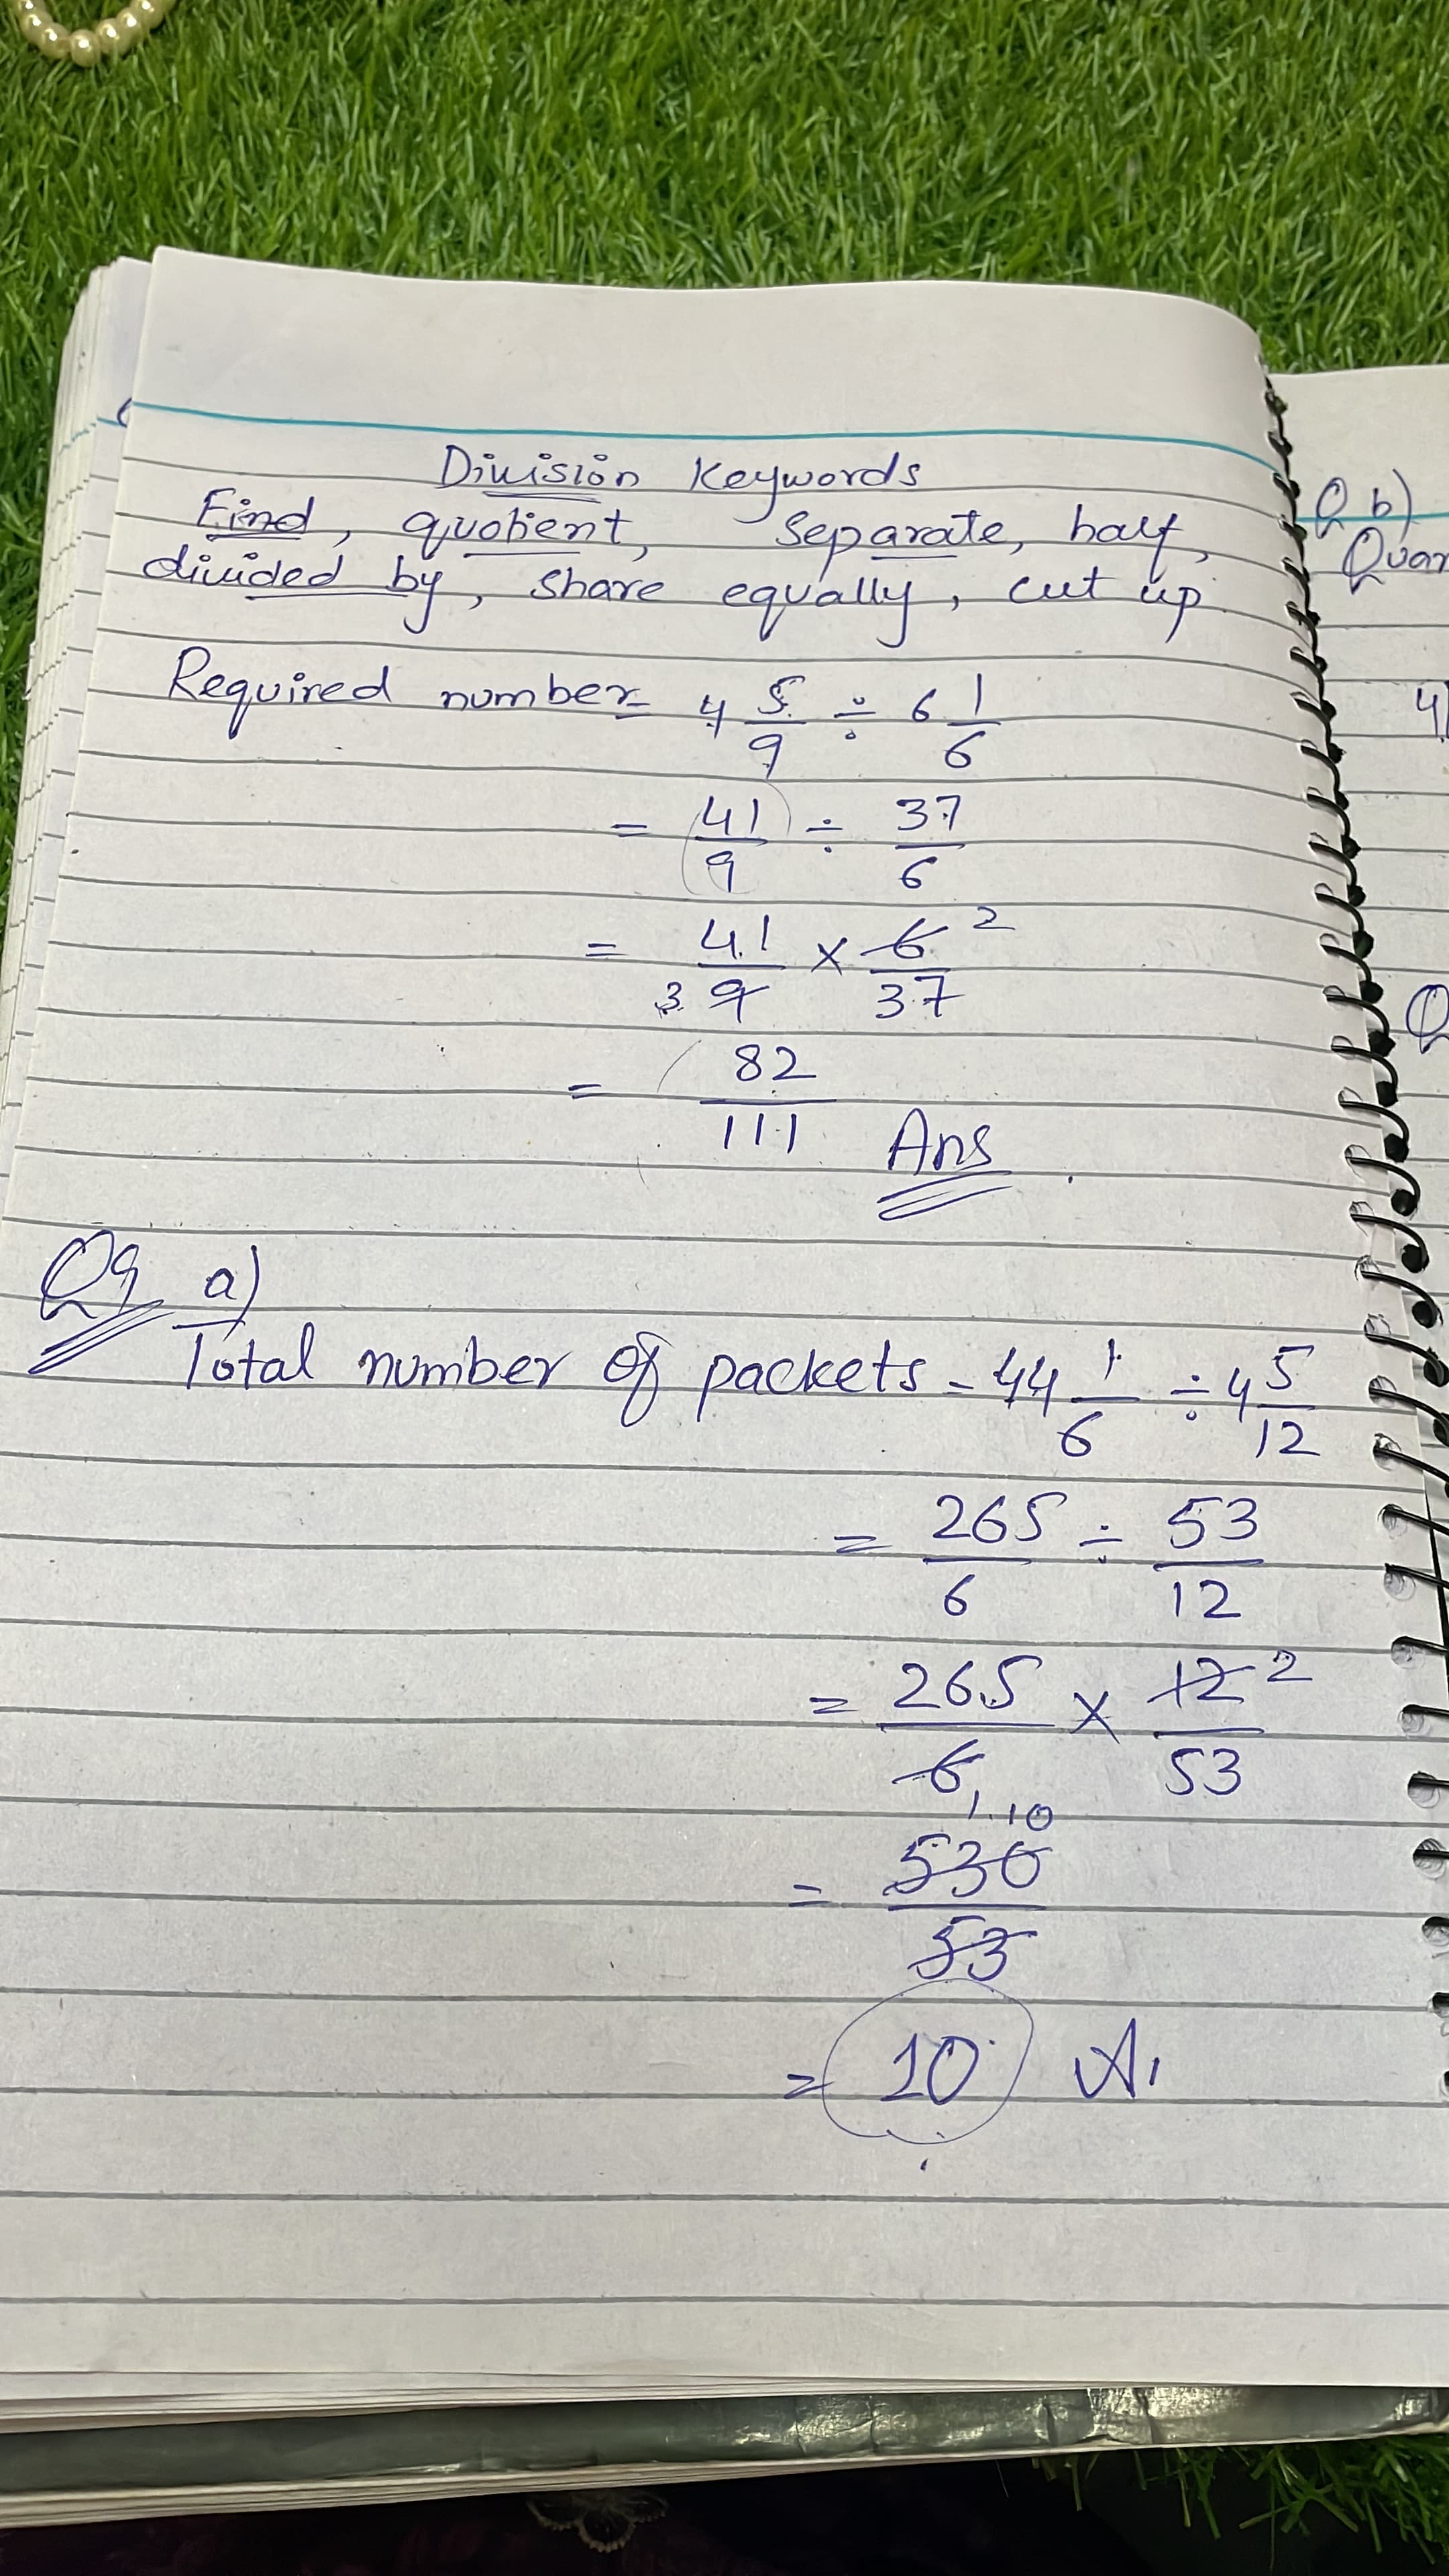 Division Keywords
Find, quotient, separate, half,
divided by, share equally, cut up
Required number = 4 5/9 ÷ 6 1/6
= 41/9 ÷ 37/6
= 41/9 3 × 6/37 2
= 82/111 Ans
Q9 a)
Total number of packets = 44 1/6 ÷ 4 5/12
= 265/6 ÷ 53/12
= 265/6 1 × 12/53 2
= 530/53 10
= 10 A
Q b)